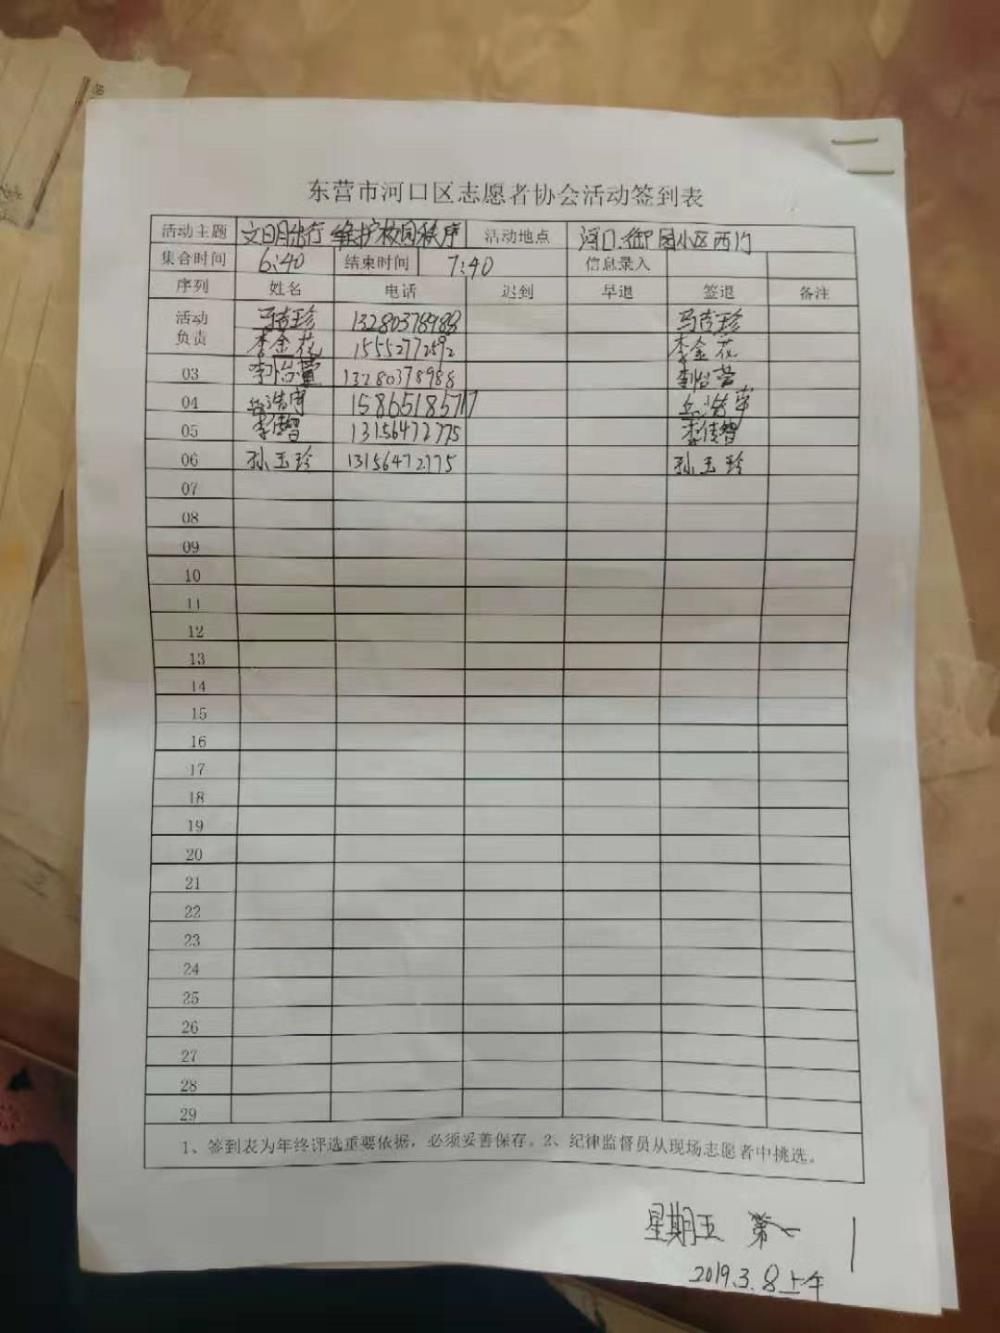 东营市河口区志愿者协会活动签到表
活动主题 文明出行 维护校园秩序 活动地点 河口御园小区西门
集合时间 6:40 结束时间 7:40 信息录入
序列 姓名 电话 迟到 早退 签退 备注
活动负责 马吉珍 13280378988 马吉珍
李金花 15552772592 李金花
03 李怡萱 13280378988 李怡萱
04 浩宇 15865185717 浩宇
05 李佳智 13156472775 李佳智
06 孙玉珍 13156472775 孙玉珍
07
08
09
10
11
12
13
14
15
16
17
18
19
20
21
22
23
24
25
26
27
28
29
1、签到表为年终评选重要依据，必须妥善保存。2、纪律监督员从现场志愿者中挑选。
星期五 第一
2019.3.8上午